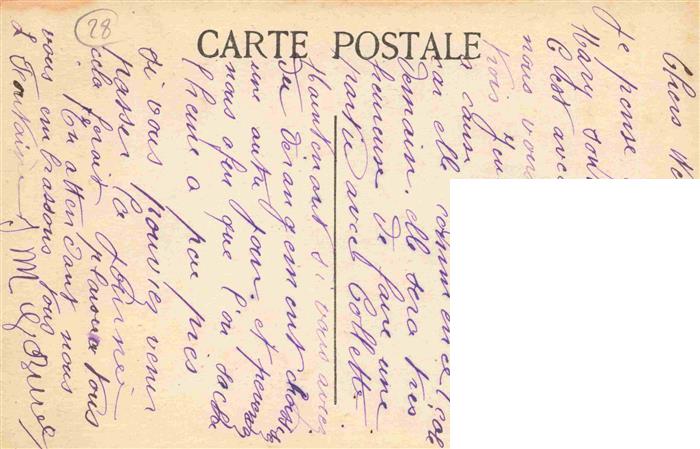 28
CARTE POSTALE
Chers
Je pense
Mary
C'est avec
nous vous
trois
a
car elle commence l'école
demain. elle sera très
heureuse de faire une
partie avec Collette.
Maintenant si vous avez
du derangement
une autre jour. et prevenez
nous afin que l'on sache
l'heure a peu pres
si vous pouviez venir
passer la journée
cela ferait plaisir a tous
En attendant nous
vous embrassons tous
M